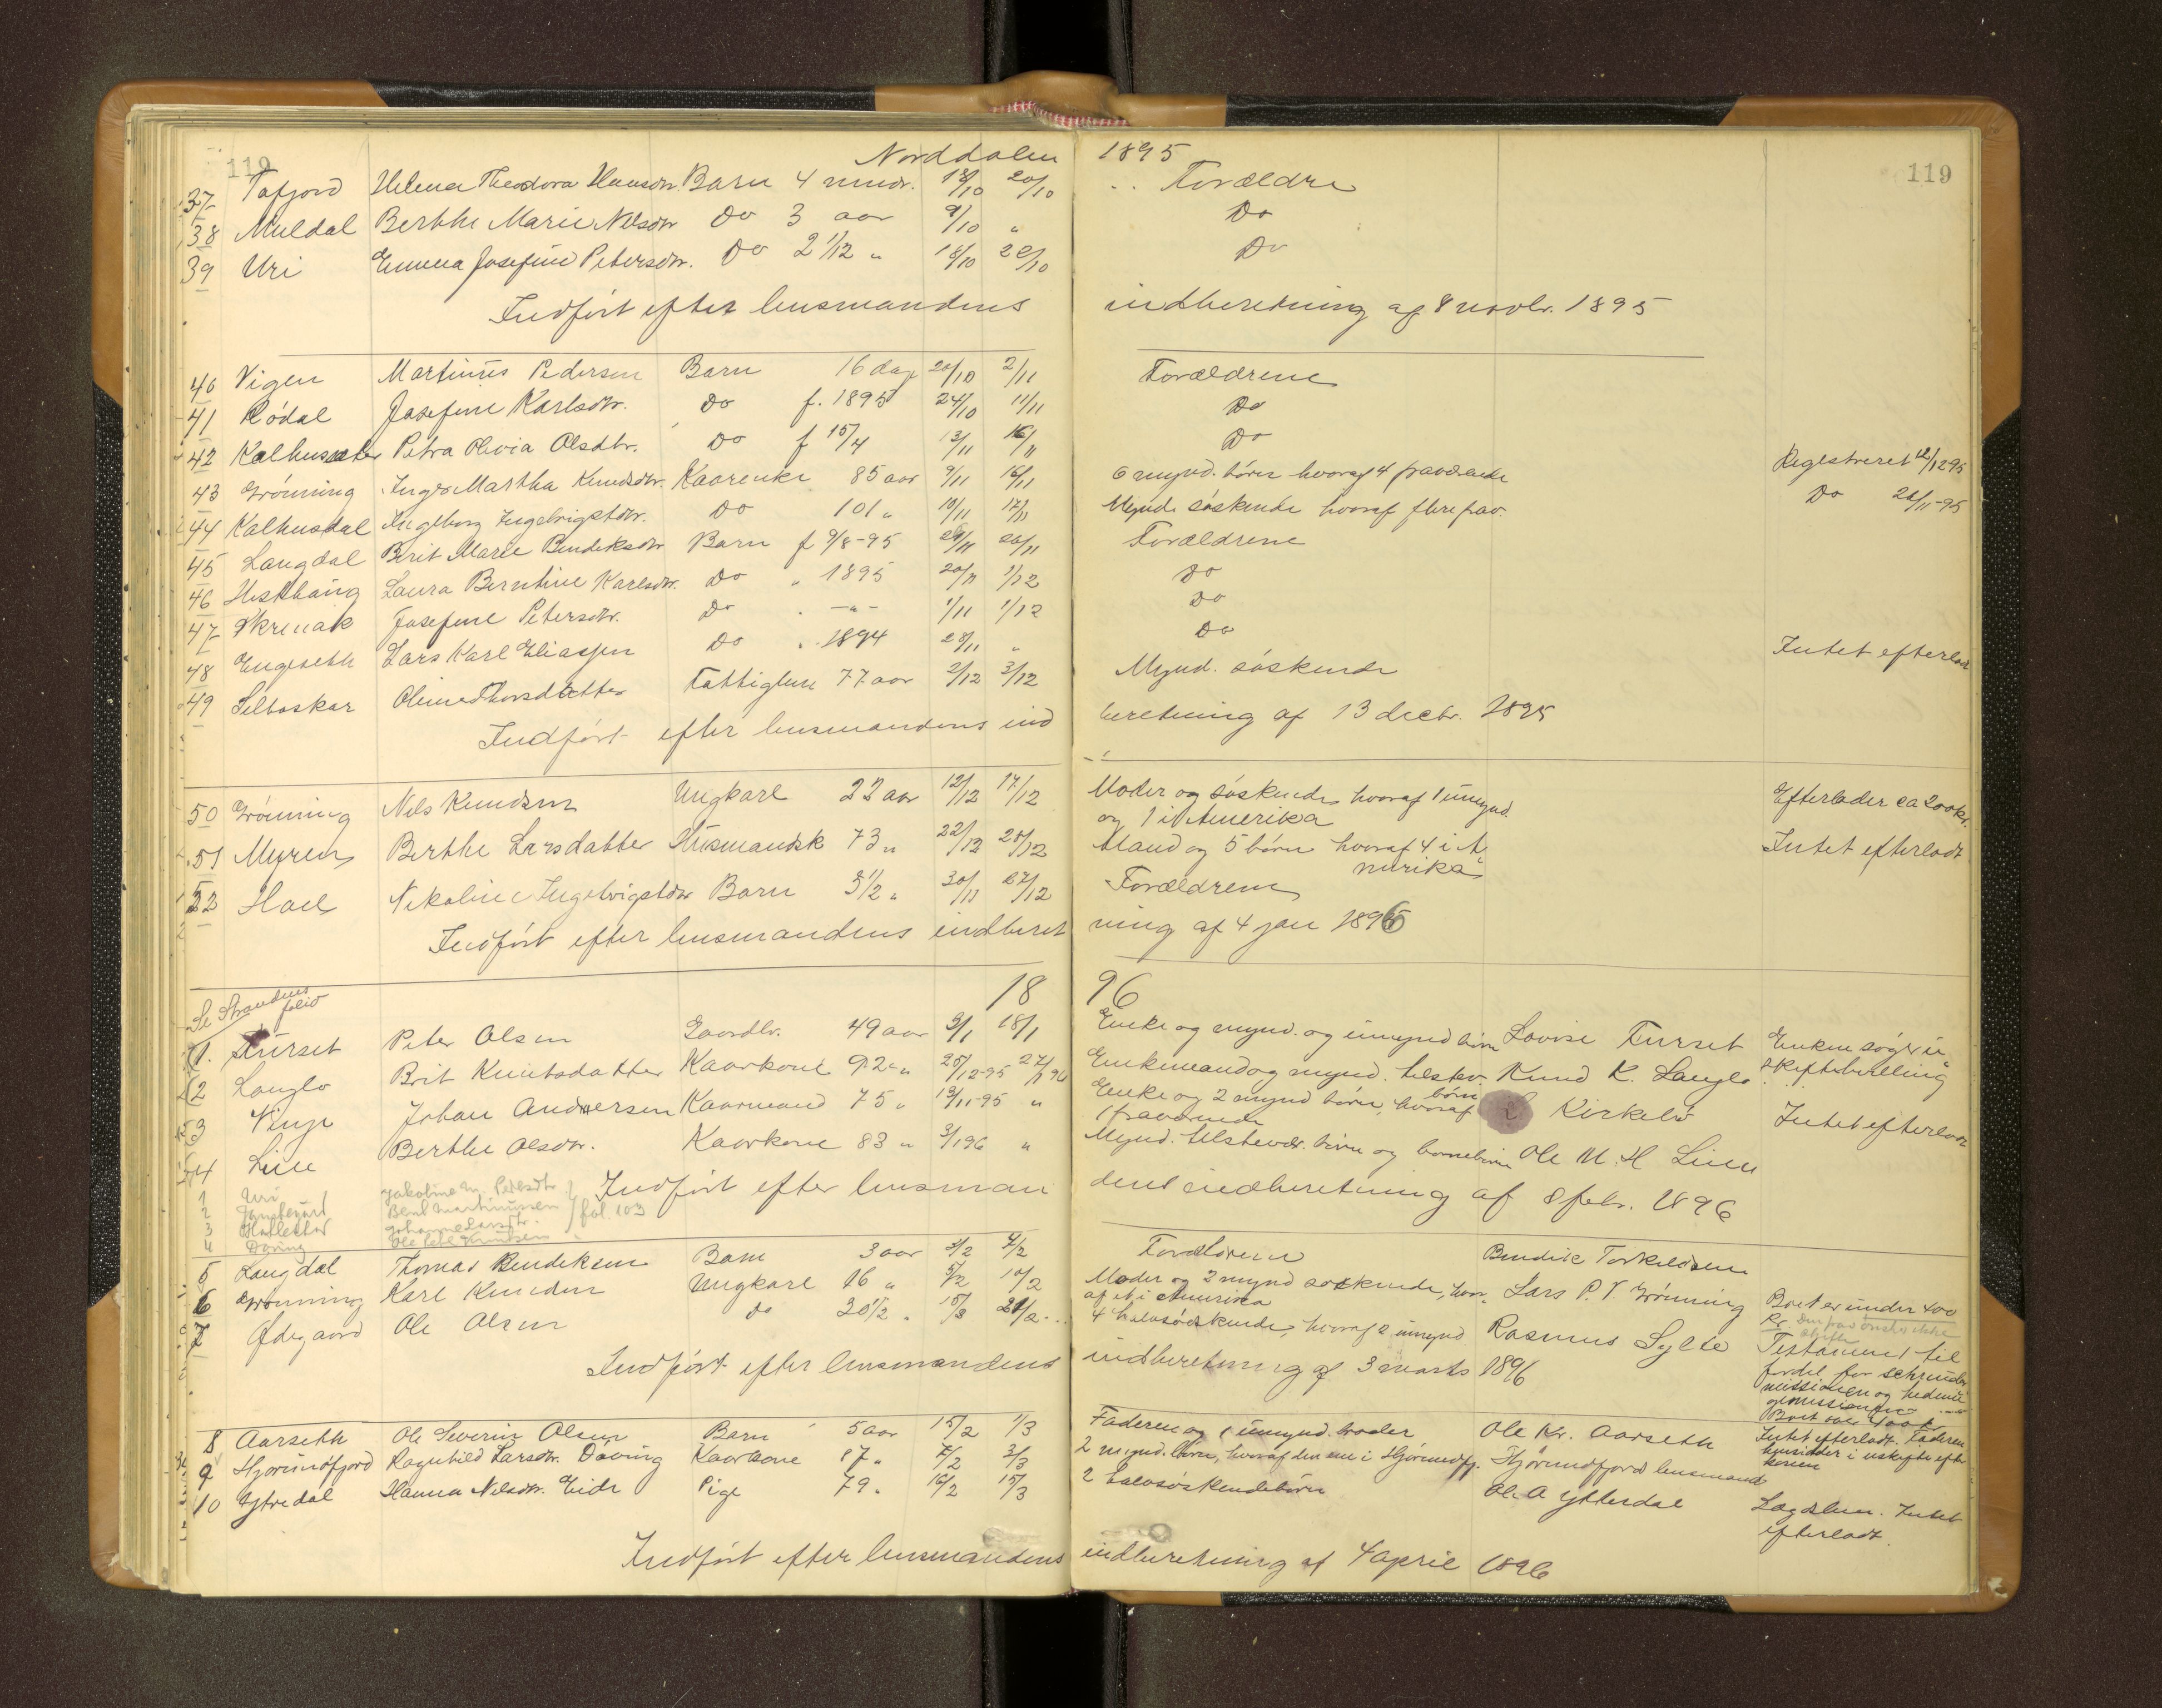 119 Norddalen 1895 119
37 Tafjord Helena Theodora Hansdtr. Barn 4 mndr. 18/10 20/10 Forældre
38 Muldal Berthe Marie Nilsdtr Do 3 aar 9/10 " Do
39 Uri Emma Josefine Petersdtr. Do 2 1/12 " 18/10 20/10 Do
Indført efter lensmandens indberetning af 8 novbr. 1895
40 Vigen Martinus Pedersen Barn 16 dag 20/10 2/11 Forældrene
41 Rødal Josefine Karlsdtr. Do f. 1895 24/10 11/11 Do
42 Kalhussæter Petra Olivia Olsdtr. Do f 15/4 13/11 16/11 Do
43 Grønning Inger Martha Knudsdtr. Kaarenke 85 aar 9/11 16/11 6 mynd. børn hvoraf 4 fraværende Registreret 12/12 95
44 Kalhusdal Ingeborg Ingebrigtsdtr. Do 101 " 10/11 17/11 Mynd. søskende hvoraf flere frav. Do 26/11-95
45 Langdal Berit Marie Bendiksdtr Barn f 9/8-95 20/11 Forældrene
46 Hesthaug Laura Berntine Karlsdtr. Do " 1895 20/11 1/12 Do
47 Skrenak Josefine Petersdtr. Do " -"- 1/11 1/12 Do
48 Engeseth Lars Karl Eliassen Do " 1894 28/11 " Do
49 Selboskar Oline Thorsdatter Fattiglem 77 aar 2/12 3/12 Mynd. søskende Intet efterladt
Indført efter lensmandens indberetning af 13 decbr. 1895
50 Grønning Nils Knudsen Ungkarl 22 aar 12/12 17/12 Moder og søskende, hvoraf 1 umynd. Efterlader ca 200 kr.
og 1 i Amerika
51 Myren Berthe Larsdatter Husmandsk 73 " 22/12 28/12 Mand og 5 børn hvoraf 4 i A Intet efterladt
merika
52 Hael Nikoline Ingebrigtsdtr Barn 3 1/2 " 30/11 27/12 Forældrene
Indført efter lensmandens indberetning af 4 jan 1896
1896
Se Strandens folio
1. Furset Peter Olsen Gaardbr. 49 aar 3/1 18/1 Enke og mynd. og umynd børn Lovise Furset Enken søger u
skiftebevilling
2 Langlo Brit Knutsdatter Kaarkone 92 " 25/12-95 27/1 96 Enkemand og mynd. tilstev. børn Knud K. Langlo
3 Vinje Johan Andersen Kaarmand 75 " 13/11-95 " Enke og 2 mynd børn, hvoraf Kirkebø Intet efterladt
1 fraværende
4 Lien Berthe Olsdtr. Kaarkone 83 " 3/1 96 " Mynd. tilstevær. børn og børnebørn Ole M. H Lien
Indført efter lensmandens indberetning af 8 febr. 1896
1 Uri Jakobine M. Pedersdtr
2 Bent Martinussen fol. 103
3 Johanne Larsdtr.
4 Døving Ole Peter Knutsen
5 Langdal Thomas Bendiksen Barn 3 aar 2/2 4/2 Forældrene Bendik Torkildsen
6 Grønning Karl Knudsen Ungkarl 16 " 5/2 10/2 Moder og 2 mynd søskende, hvor Lars P. V. Grønning Boet er under 400
af et i Amerika kr.
7 Ødegaard Ole Olsen do 20 1/2 " 21/2 4 halvsødskende, hvoraf 2 umynd Rasmus Sylte Testament til
fordel for
missionen og hedninge
missionen
Boet over 400 k
Indført efter lensmandens indberetning af 3 marts 1896
8 Aarseth Ole Severin Olsen Barn 5 aar 15/2 1/3 Faderen og 1 umynd. broder Ole Kr. Aarseth Intet efterladt. Faderen
hensidder i uskifte efter
konen
9 Hjørundfjord Ragnhild Larsdtr. Døving Kaarkone 87 " 7/2 3/3 2 mynd. børn, hvoraf den ene i Hjørundfj. Hjørundfjord lensmand
10 Ytredal Hanna Nilsdtr. Eide Pige 79 " 16/2 15/3 2 halvsøskendebørn Ole A Ytterdal Lægdslem. Intet
efterladt.
Indført efter lensmandens indberetning af 4 april 1896